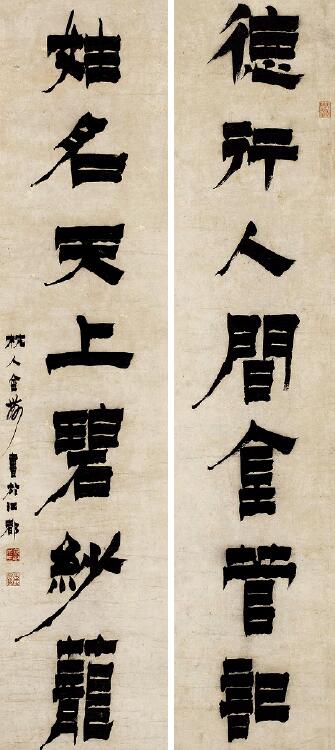 德行人間金管記
姓名天上碧紗籠
杭人金農書於江都